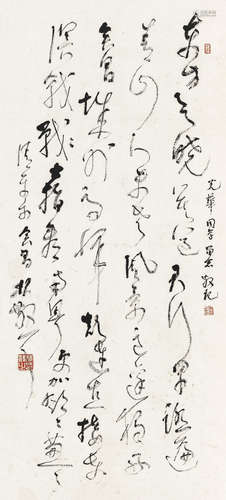 东方欲晓莫道君行早踏遍
青山人未老风景这边独好
会昌城外高峰颠连直接东
溟战士指看南粤更加郁〻葱〻
清平乐会昌
光華同学